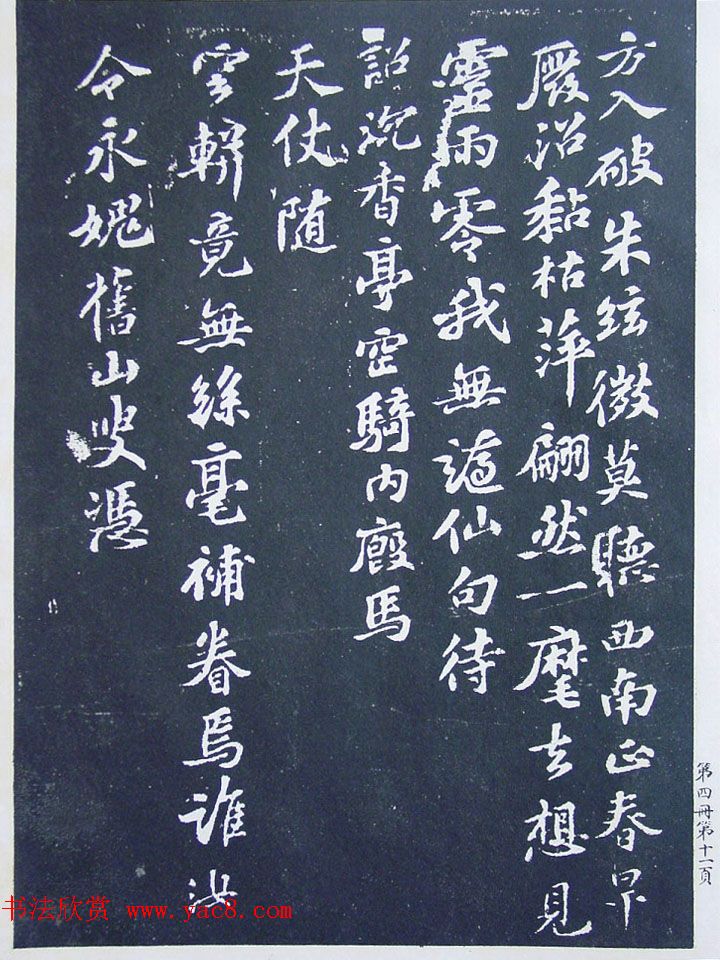 方入破朱絃微莫聽西南正春旱
廢沼黏枯萍翩然一麾去想見
靈雨零我無謫仙句待
詔沉香亭空騎內廄馬
天仗随
雲軿竟無絲毫補眷焉誰汝
令永媿舊山叟憑
第四冊第十一頁
书法欣赏 www.yac8.com